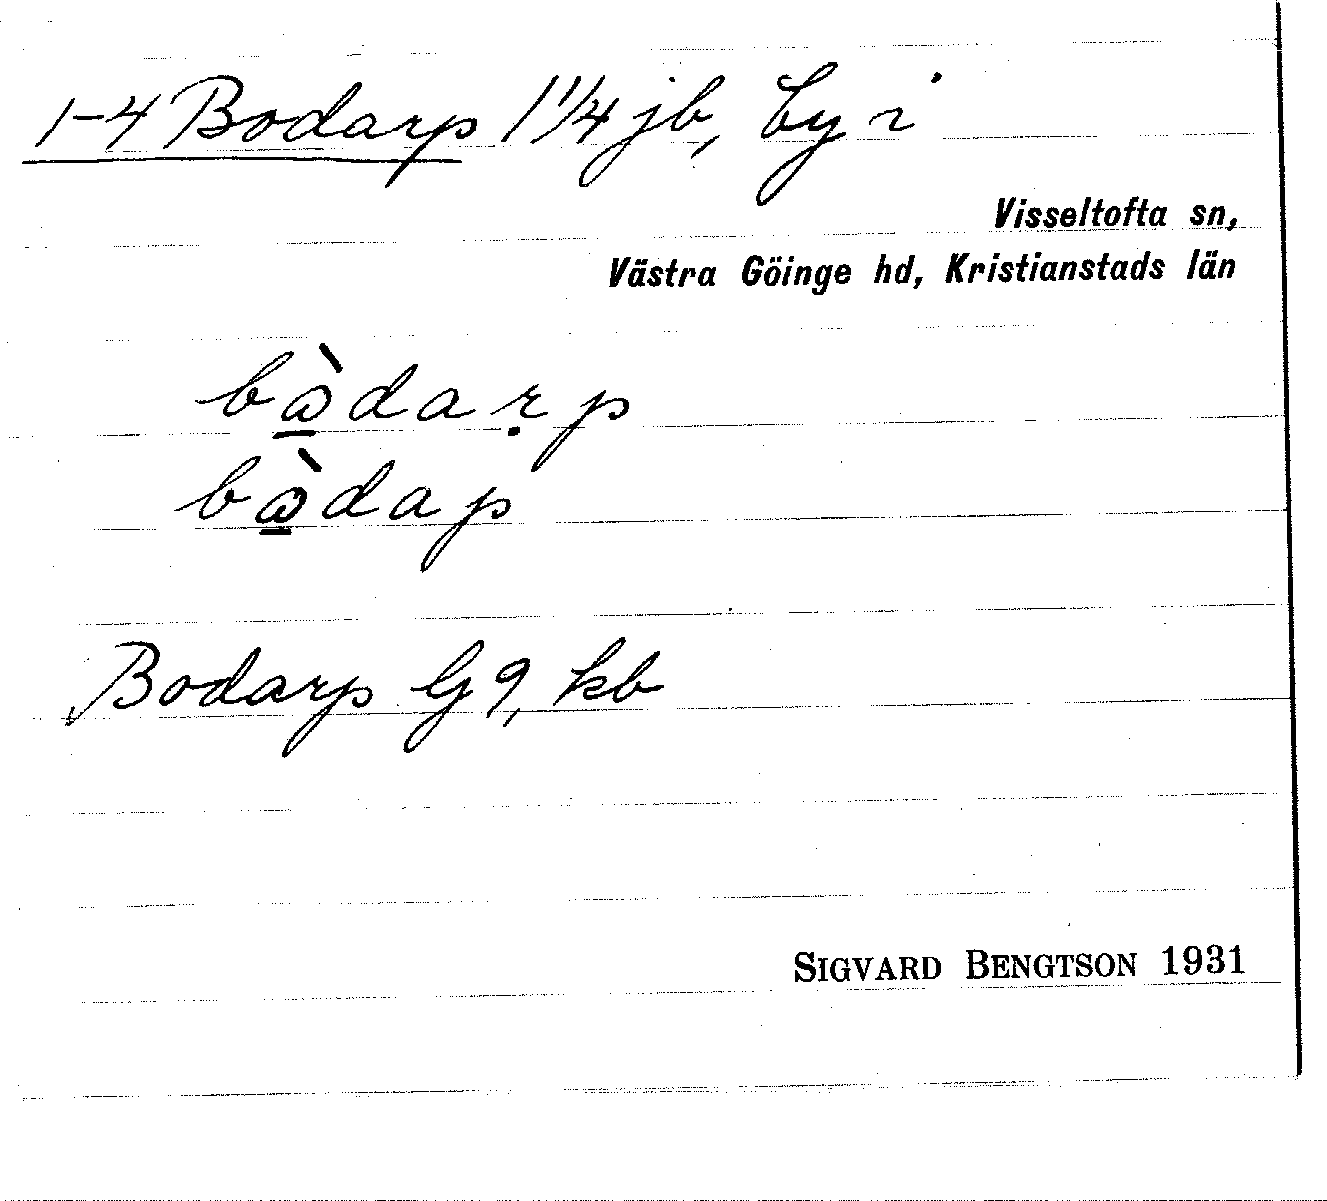 1-4 Bodarp 1 1/4 jb, by i
Visseltofta sn,
Västra Göinge hd, Kristianstads län
bɷ̱̀daṛp
bɷ̱̀dap
Bodarp G 9, kb
SIGVARD BENGTSON 1931